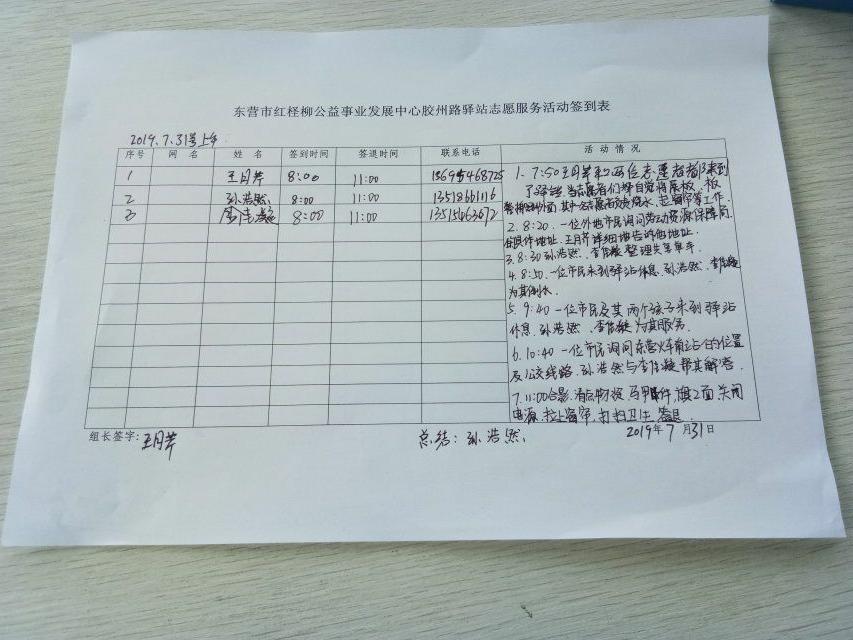 东营市红柽柳公益事业发展中心胶州路驿站志愿服务活动签到表
2019.7.31号上午
序号 网 名 姓 名 签到时间 签退时间 联系电话 活 动 情 况
1 王月芹 8:00 11:00 15695468725
2 孙浩然 8:00 11:00 13518661116
3 8:00 11:00
1. 7:50王月芹和两位志愿者都来到
了驿站.志愿者们都自觉将展板,板
烧水,起窗帘等工作.
2. 8:20.一位外地市民询问劳动资源保障局
地址.王月芹详细地告诉他地址.
3. 8:30 孙浩然、李佳凝整理失单車.
4. 8:50.一位市民来到驿站休息.孙浩然、李佳凝
为其倒水.
5. 9:40一位市民及其两个孩子来到驿站
休息.孙浩然、李佳凝为其服务.
6. 10:40一位市民询问东营火车站的位置
及公交线路.孙浩然与李佳凝帮其解答.
7. 11:00合影.清点物资,马甲件,旗2面.关闭
电源.拉上窗帘.打扫卫生.签退.
组长签字:王月芹 总结:孙浩然. 2019年7月31日